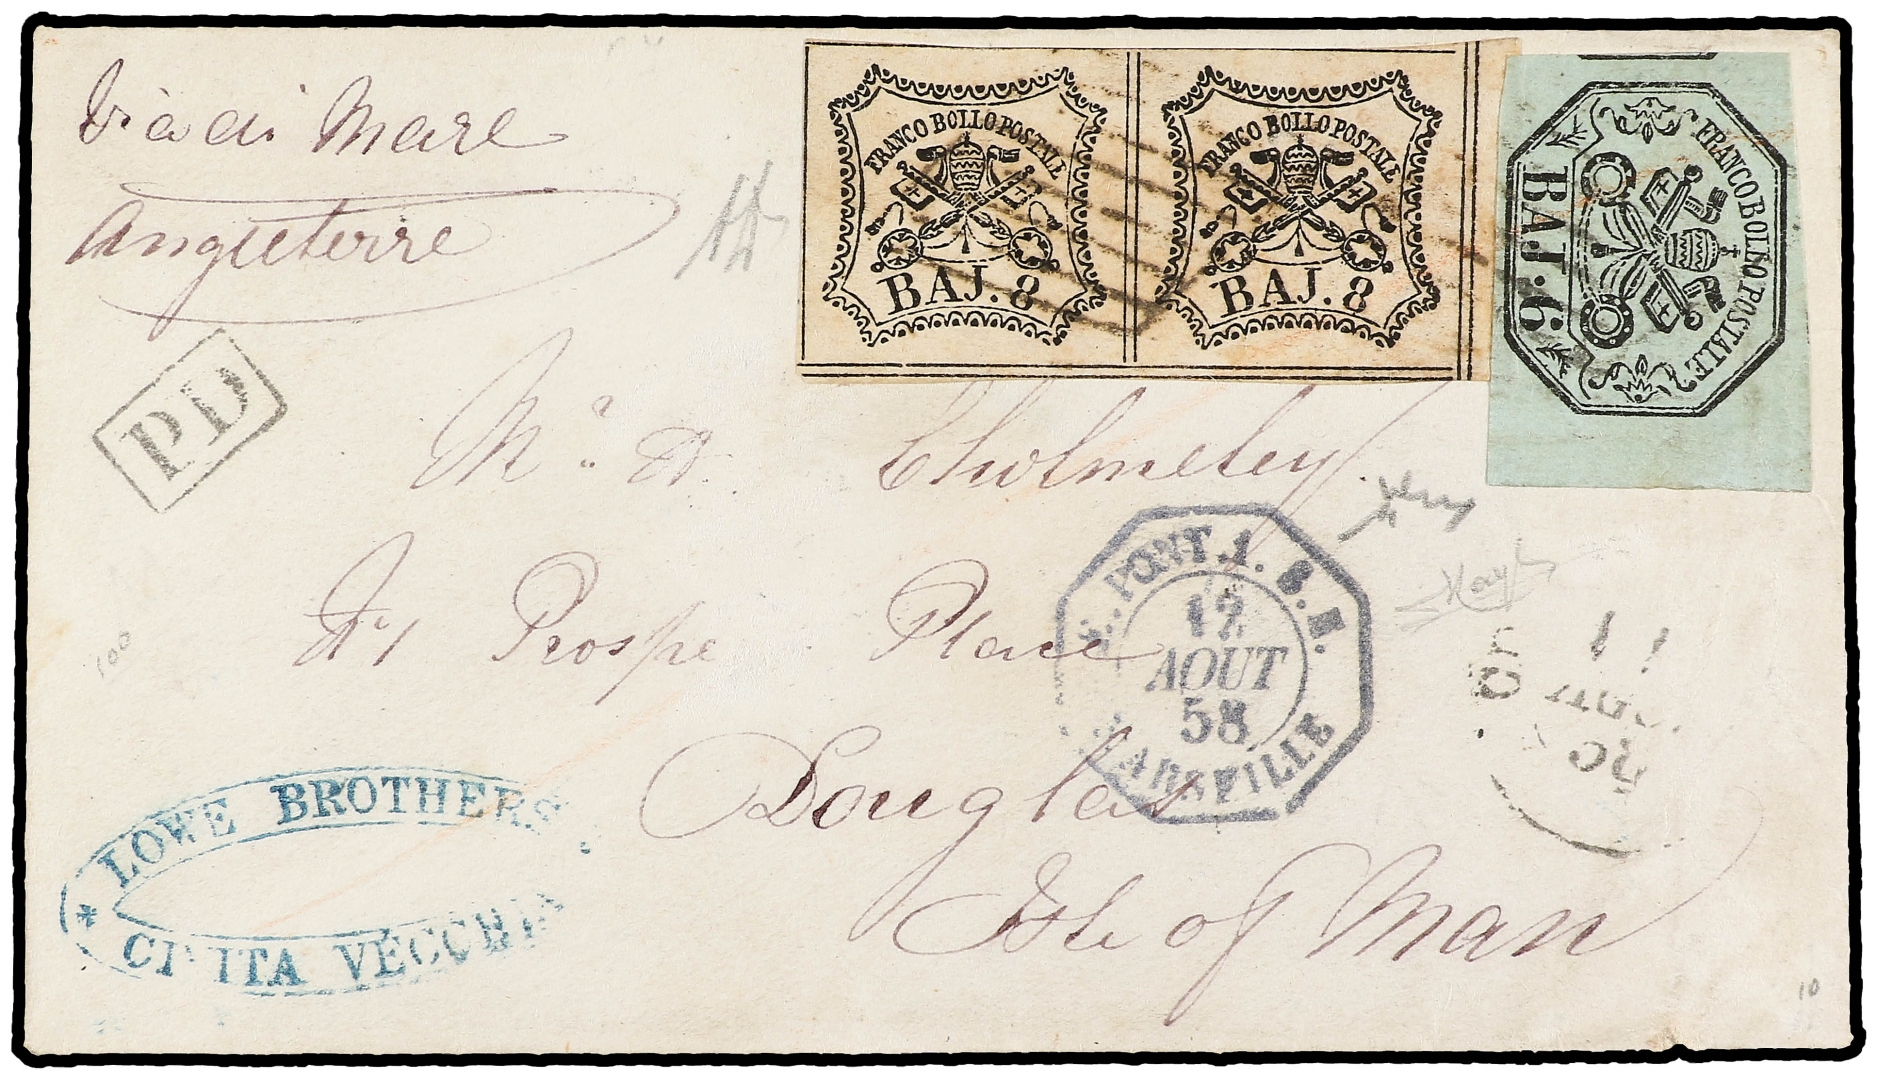 Via di Mare
Angleterre
FRANCO BOLLO POSTALE
BAJ. 8
FRANCO BOLLO POSTALE
BAJ. 8
FRANCO BOLLO POSTALE
BAJ. 6
PD
Mrs A Cholmeley
No 1 Prospe Place
Douglas
Isle of Man
E. PONT. 1. S. M.
17
AOUT
58
MARSEILLE
11
LOWE BROTHERS
CIVITA VECCHIA
100
10